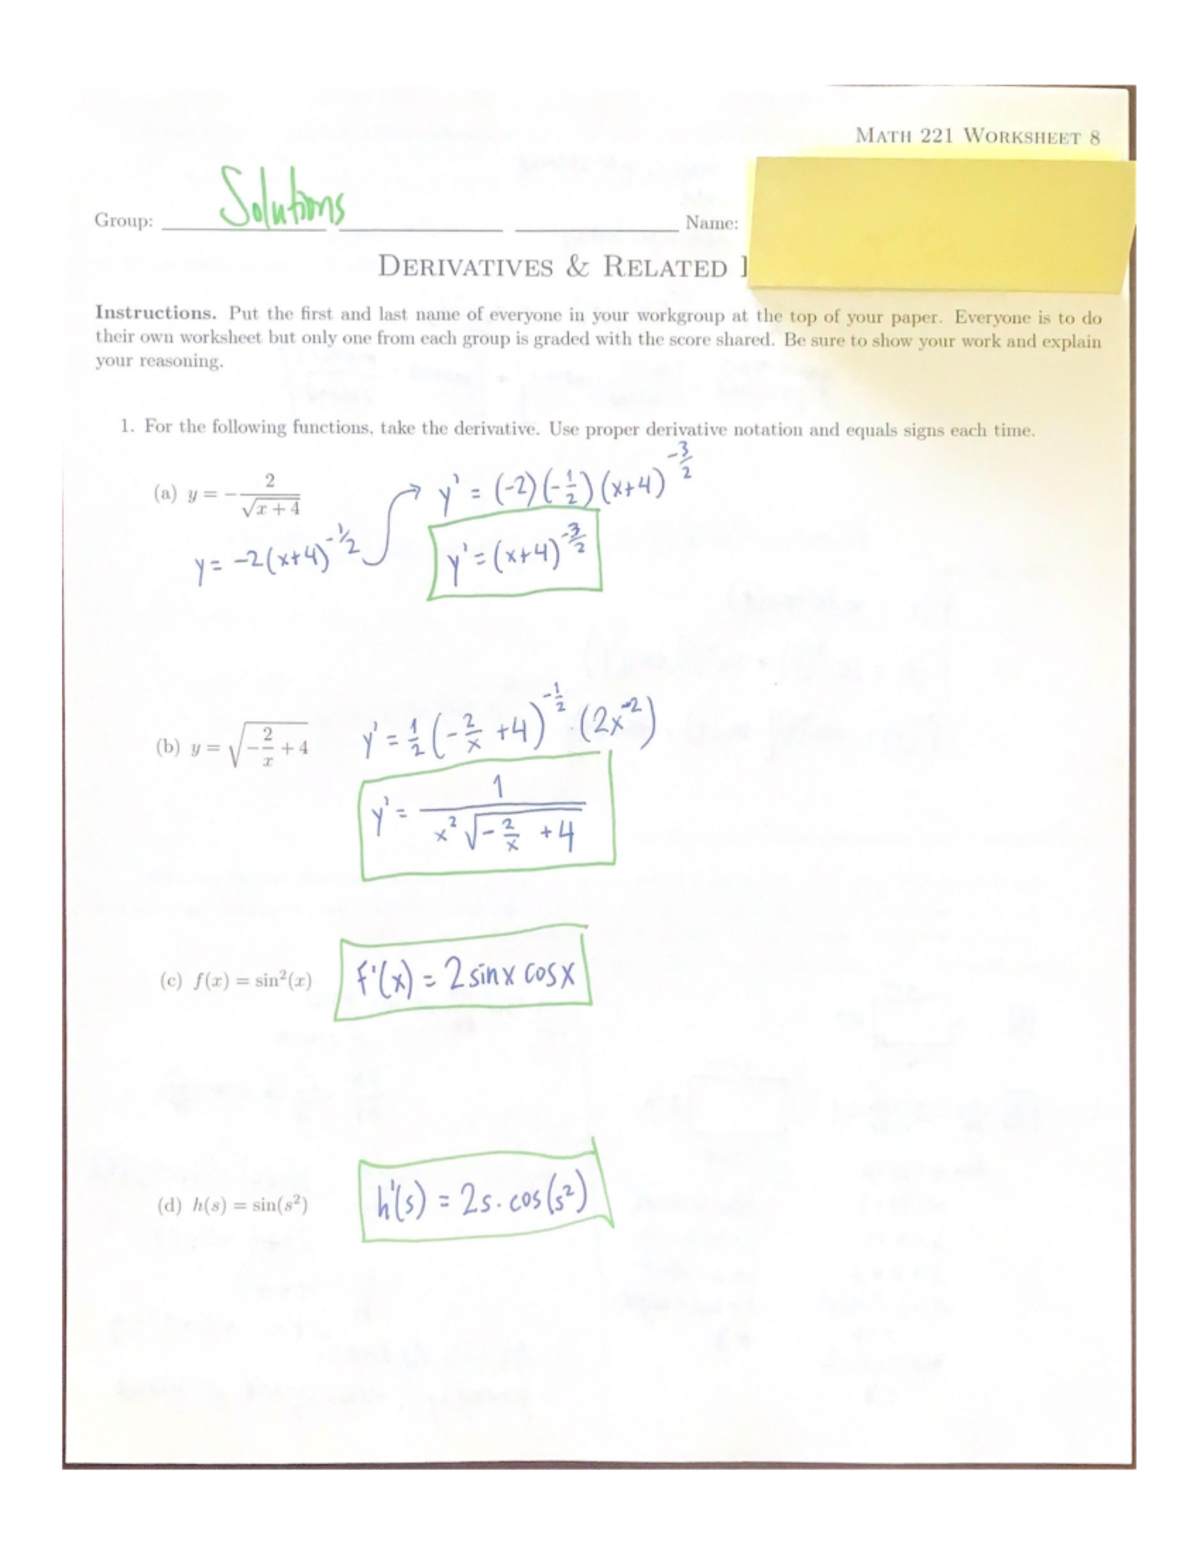 MATH 221 WORKSHEET 8
Group: Solutions Name:
DERIVATIVES & RELATED
Instructions. Put the first and last name of everyone in your workgroup at the top of your paper. Everyone is to do
their own worksheet but only one from each group is graded with the score shared. Be sure to show your work and explain
your reasoning.
1. For the following functions, take the derivative. Use proper derivative notation and equals signs each time.
(a) y = -2/√(x + 4)
y' = (-2)(-1/2)(x+4)^(-3/2)
y = -2(x+4)^(-1/2)
y' = (x+4)^(-3/2)
(b) y = √(-2/x + 4)
y' = 1/2(-2/x +4)^(-1/2) · (2x^(-2))
y' = 1/(x²√(-2/x +4))
(c) f(x) = sin²(x)
f'(x) = 2 sin x cos x
(d) h(s) = sin(s²)
h'(s) = 2s · cos(s²)